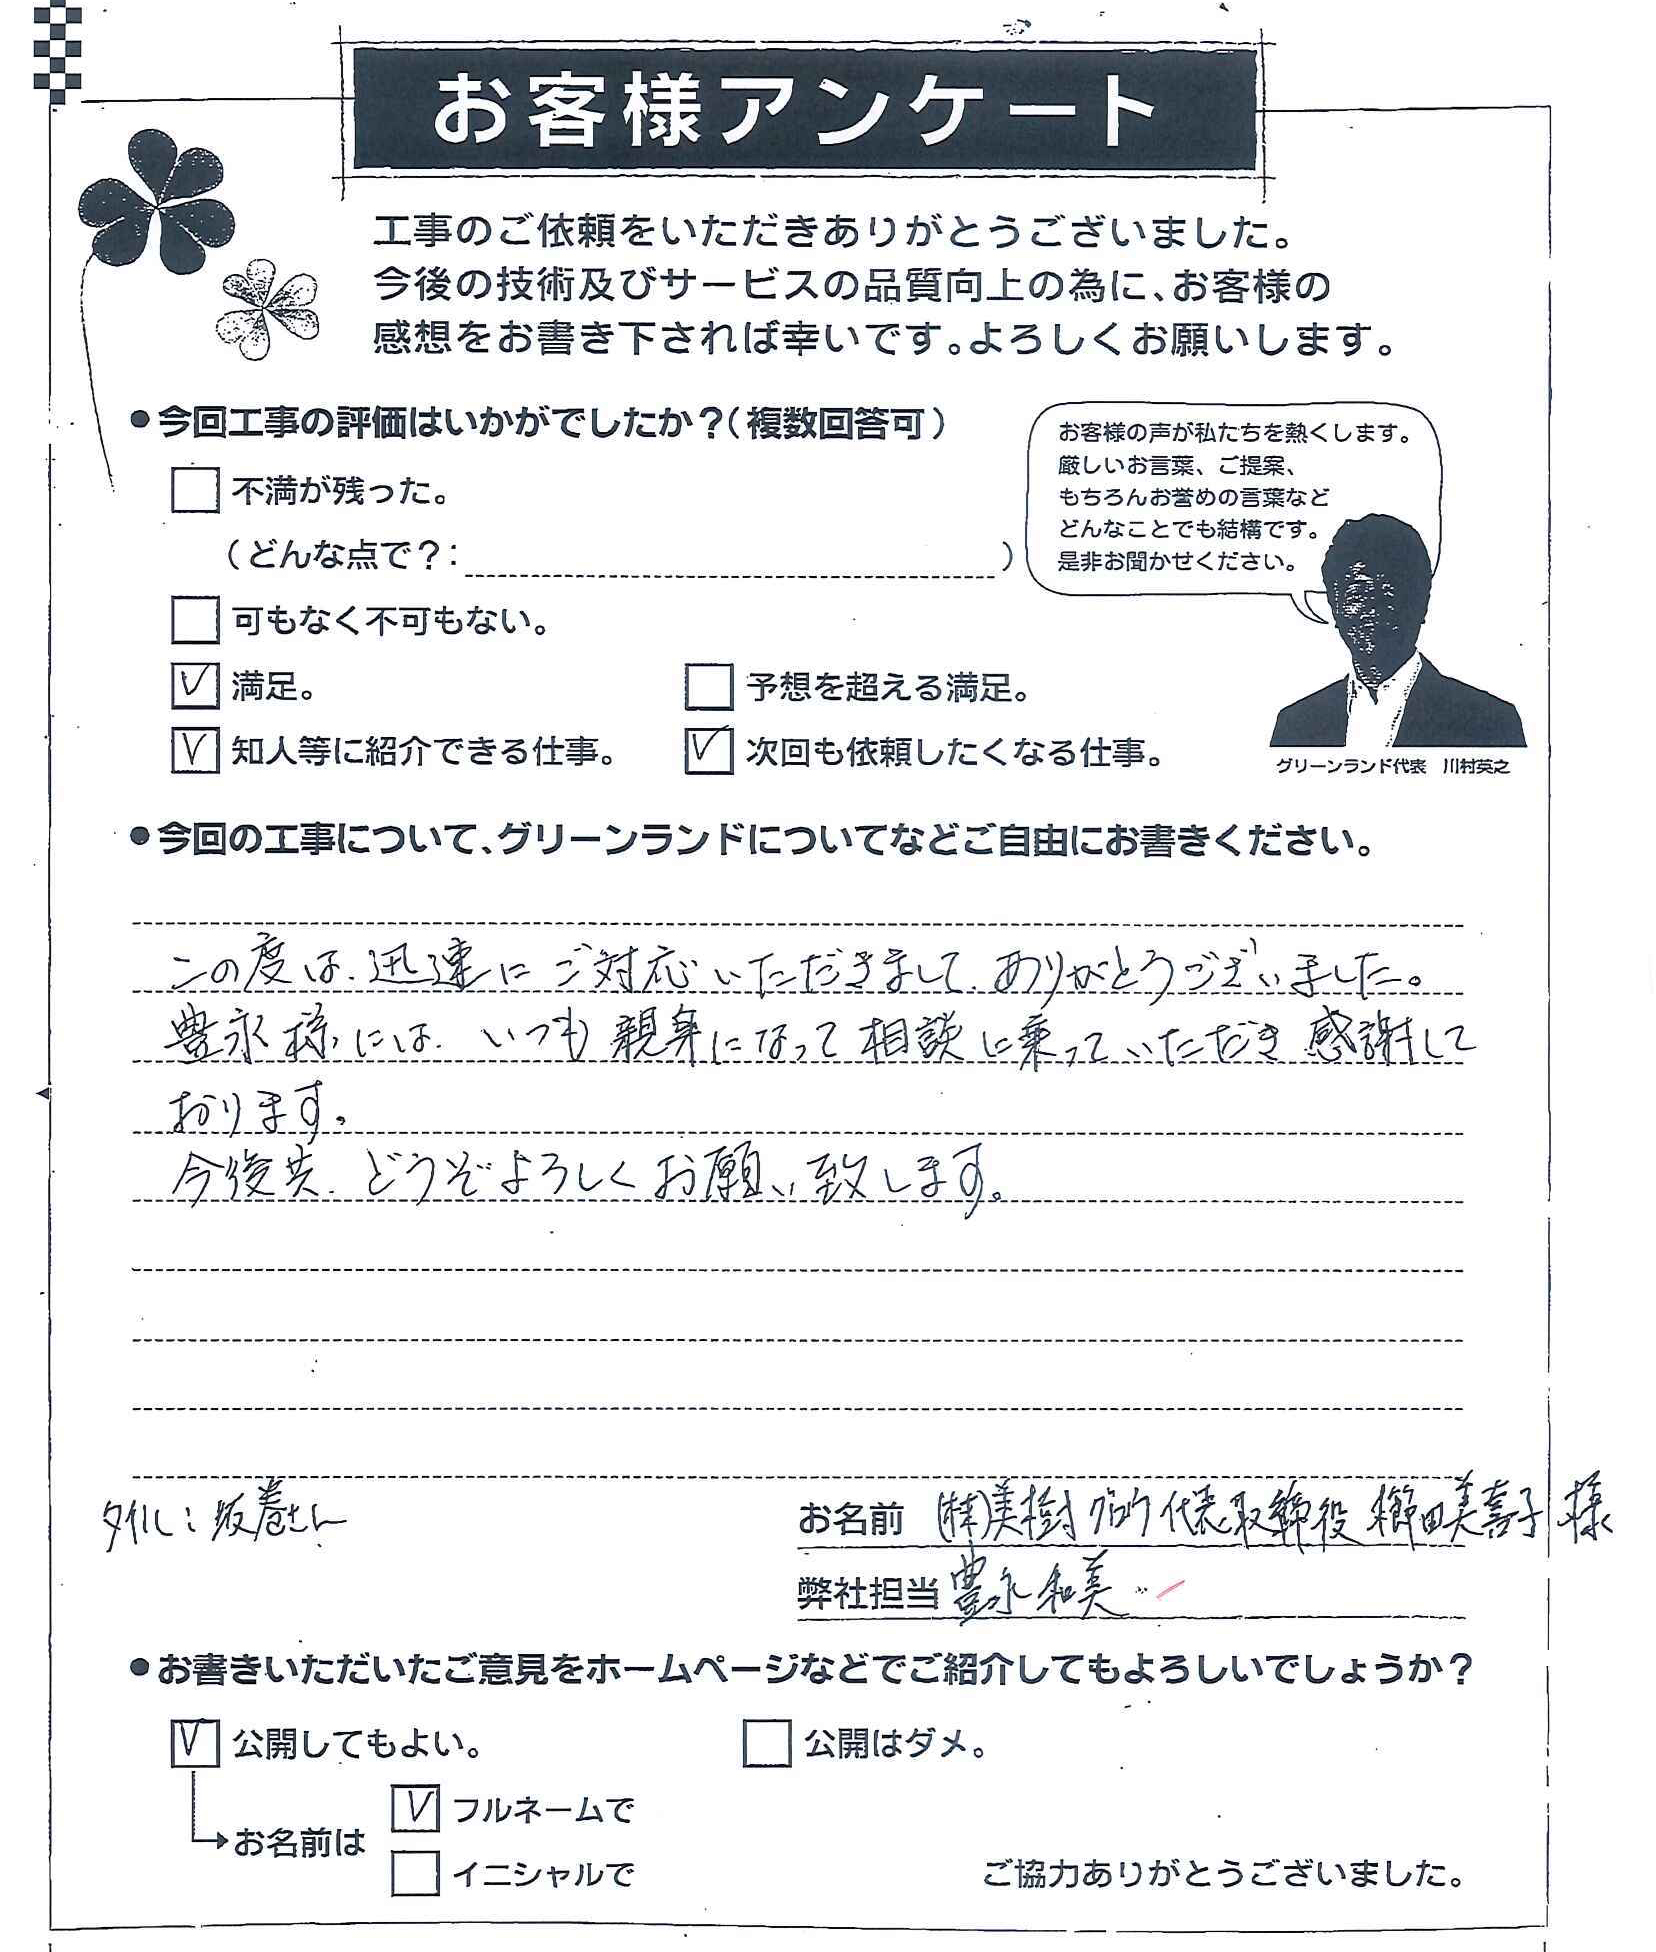 お客様アンケート
工事のご依頼をいただきありがとうございました。
今後の技術及びサービスの品質向上の為に、お客様の
感想をお書き下されば幸いです。よろしくお願いします。
●今回工事の評価はいかがでしたか？（複数回答可）
不満が残った。
（どんな点で？： ）
可もなく不可もない。
満足。
予想を超える満足。
知人等に紹介できる仕事。
次回も依頼したくなる仕事。
お客様の声が私たちを熱くします。
厳しいお言葉、ご提案、
もちろんお誉めの言葉など
どんなことでも結構です。
是非お聞かせください。
グリーンランド代表 川村英之
●今回の工事について、グリーンランドについてなどご自由にお書きください。
この度は、迅速にご対応いただきまして、ありがとうございました。
豊永様には、いつも親身になって相談に乗っていただき感謝して
おります。
今後共、どうぞよろしくお願い致します。
タイル：坂巻さん
お名前 (株)美樹グロウ代表取締役 櫛田美喜子 様
弊社担当 豊永和美
●お書きいただいたご意見をホームページなどでご紹介してもよろしいでしょうか？
公開してもよい。
公開はダメ。
お名前は
フルネームで
イニシャルで
ご協力ありがとうございました。